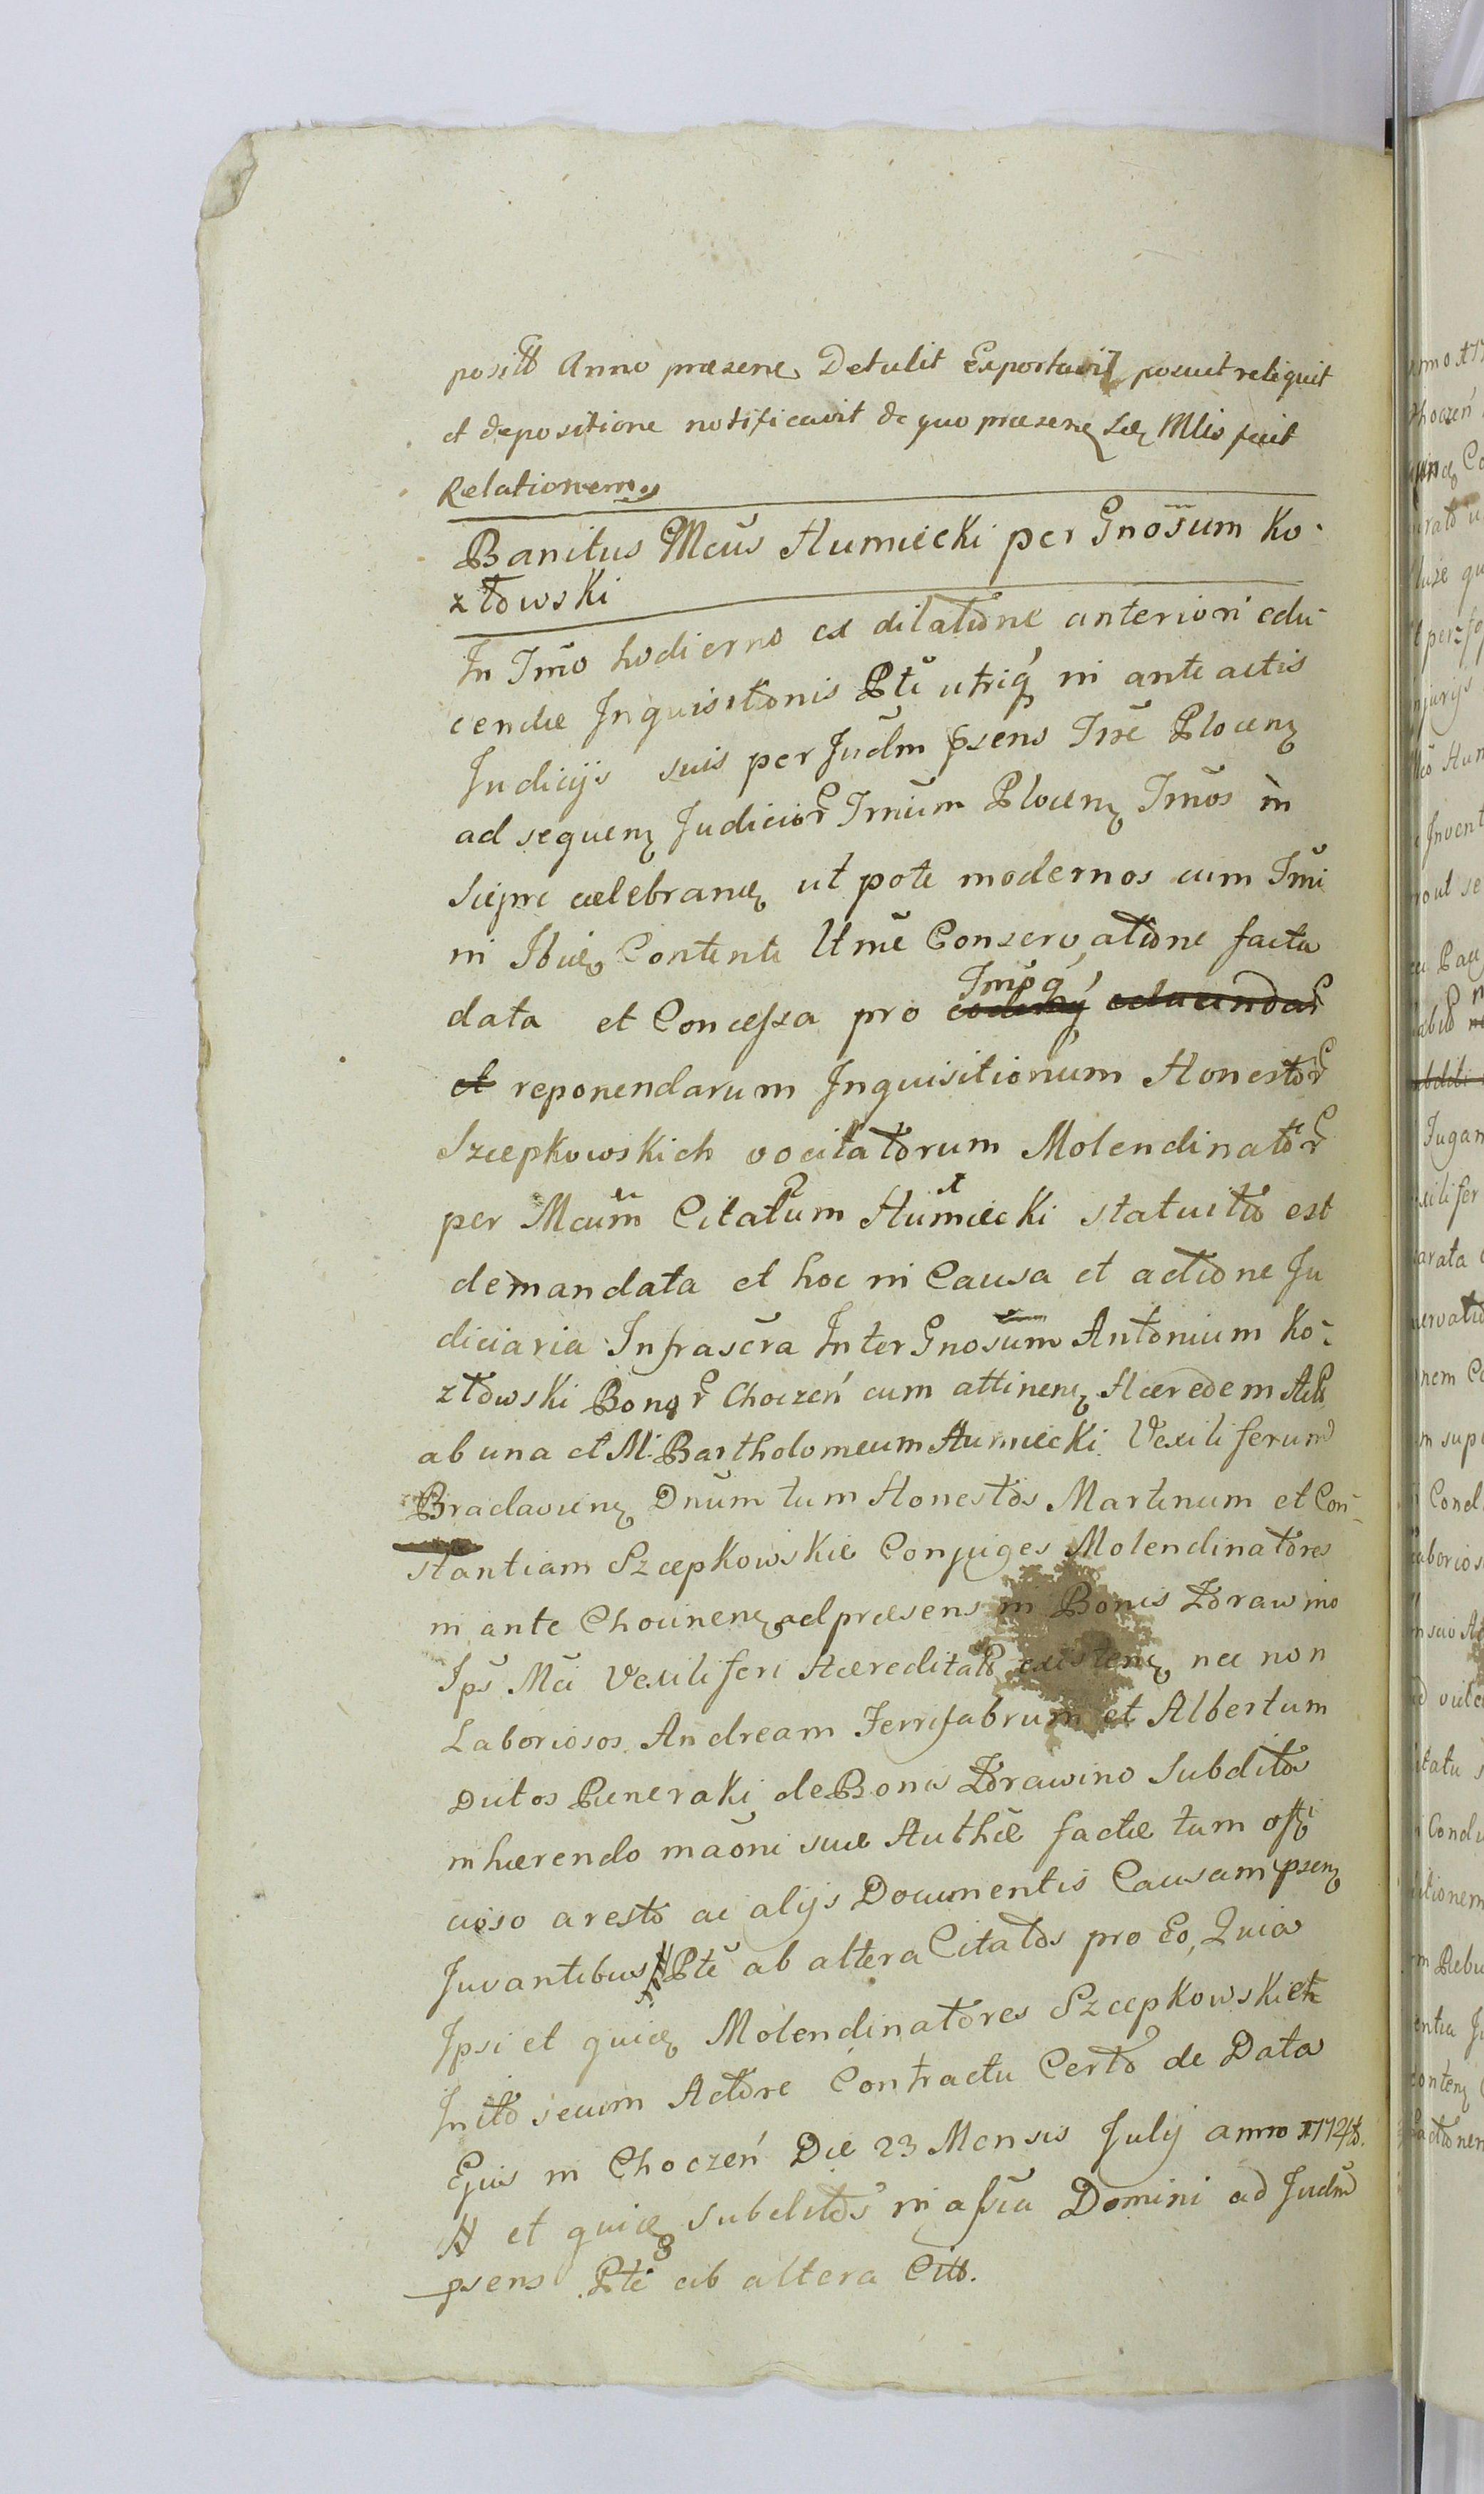 positt Anno præsene Detulit Exportavit posuit reliquit
et depositione notificavit de quo præsene Mlis fecit
Relationem
Banitus Mcus Humiecki per Gnosum Ko-
złowski
In Tmo hodierno ex dilatione anteriori edu-
cendæ Inquisitionis Pti utriq in ante actis
Judicijs suis per Judm psens Tre Plocen
ad sequen Judicior Trium Plocen Tmos in
celebran ut pote modernos cum Tmi
in Ibid Contenti Conservatione facta
data et Concessa pro Tmoq
et reponendarum Inquisitionum Honestor
Szczepkowskich vocitatorum Molendinator
per Mcum Citatum Humiecki statuitto est
demandata et hoc in Causa et actione Ju
diciaria Infrascra Inter Gnosum Antonium Ko-
złowski Bonor Choczeń cum attinen Hæredem
ab una et M. Bartholomeum Humiecki Vexiliferum
Braclavien Dnum tum Honestos Martinum et Con-
stantiam Szczepkowskie Conjuges Molendinatores
in ante Chocinen ad præsens in Bonis Zdrawino
Ips Mci Vexiliferi Hæreditat existen nec non
Laboriosos Andream Ferrifabrum et Albertum
Dictos Pieneraki de Bonis Zdrawino Subditos
inhærendo maoni suæ Authæ factæ tum offi
cioso aresto ac alijs Documentis Causam psen
Juvantibus Pte ab altera Citatos pro Eo, Quia
Ipsi et quid Molendinatores Szczepkowskich
Inito secum Actore Contractu Certo de Data
Ejus in Choczeń Die 23 Mensis Julij anno
# et quid subditos in assia Domini ad Judm
psens Pte ab altera Citt.